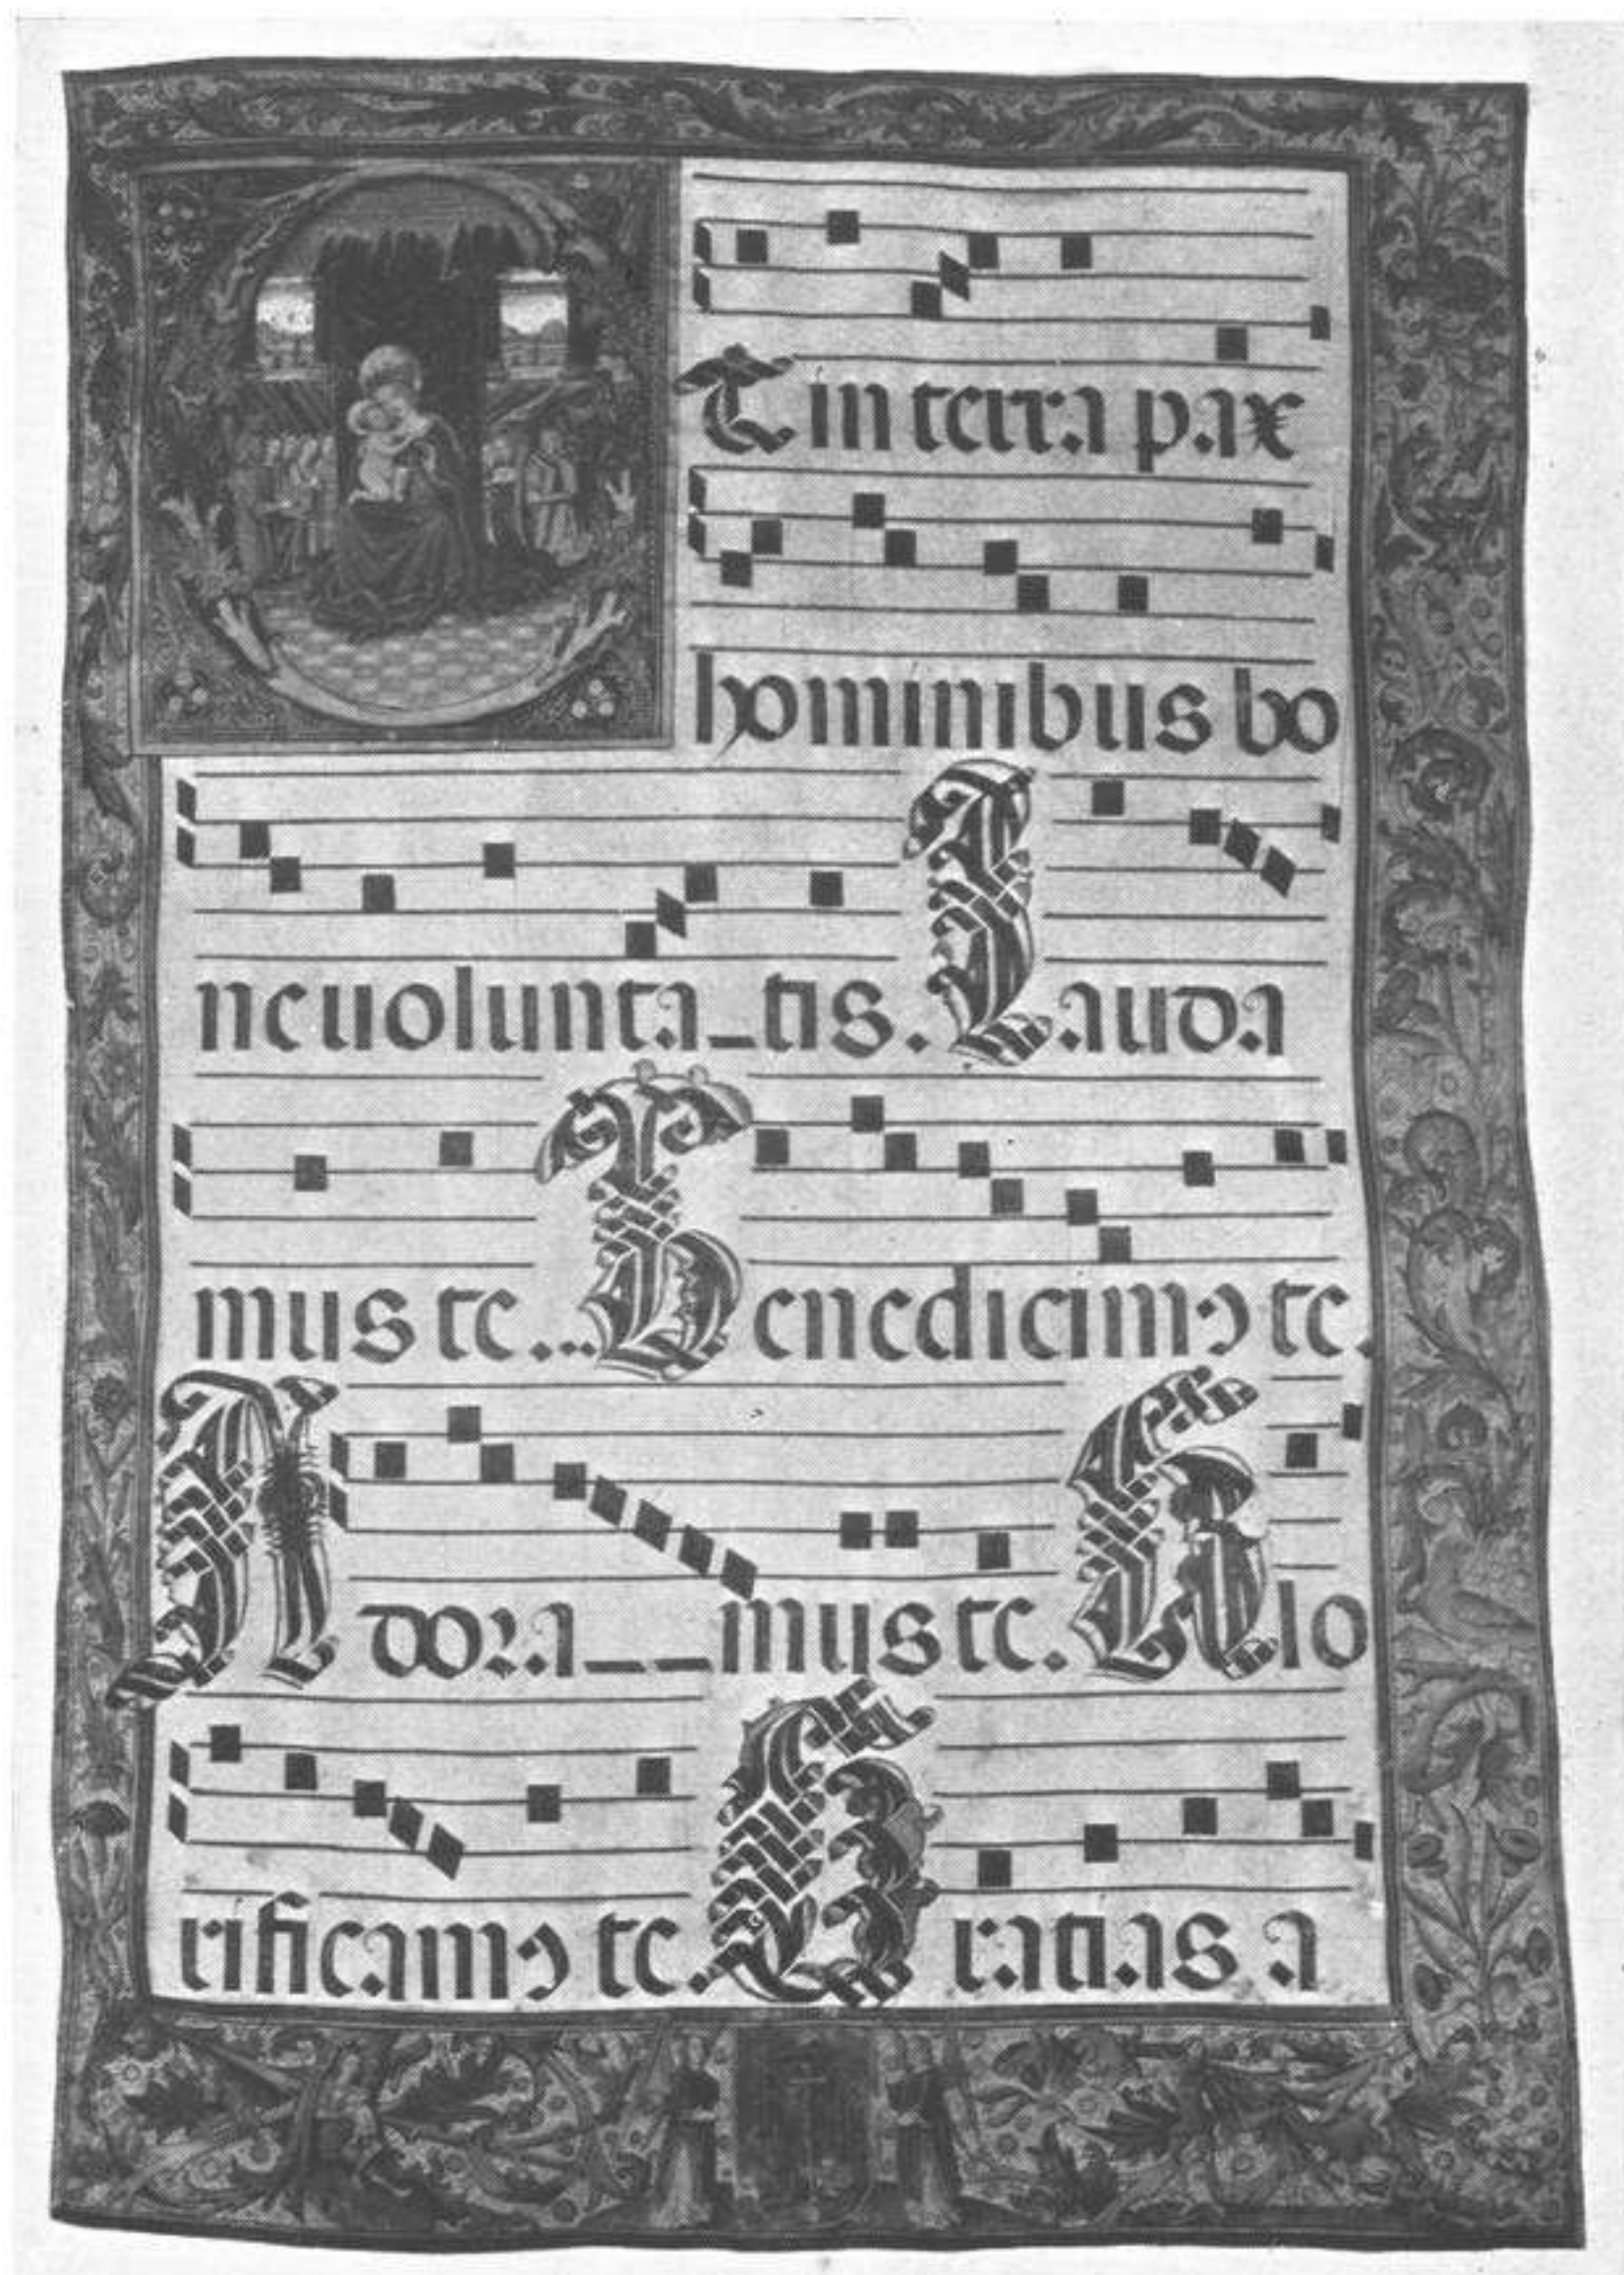 ET in terra pax
hominibus bo
ne uolunta_tis. Lauda
mus te... Benedicimꝰ te.
Adora__mus te. Glo
rificamꝰ te. Gratias a